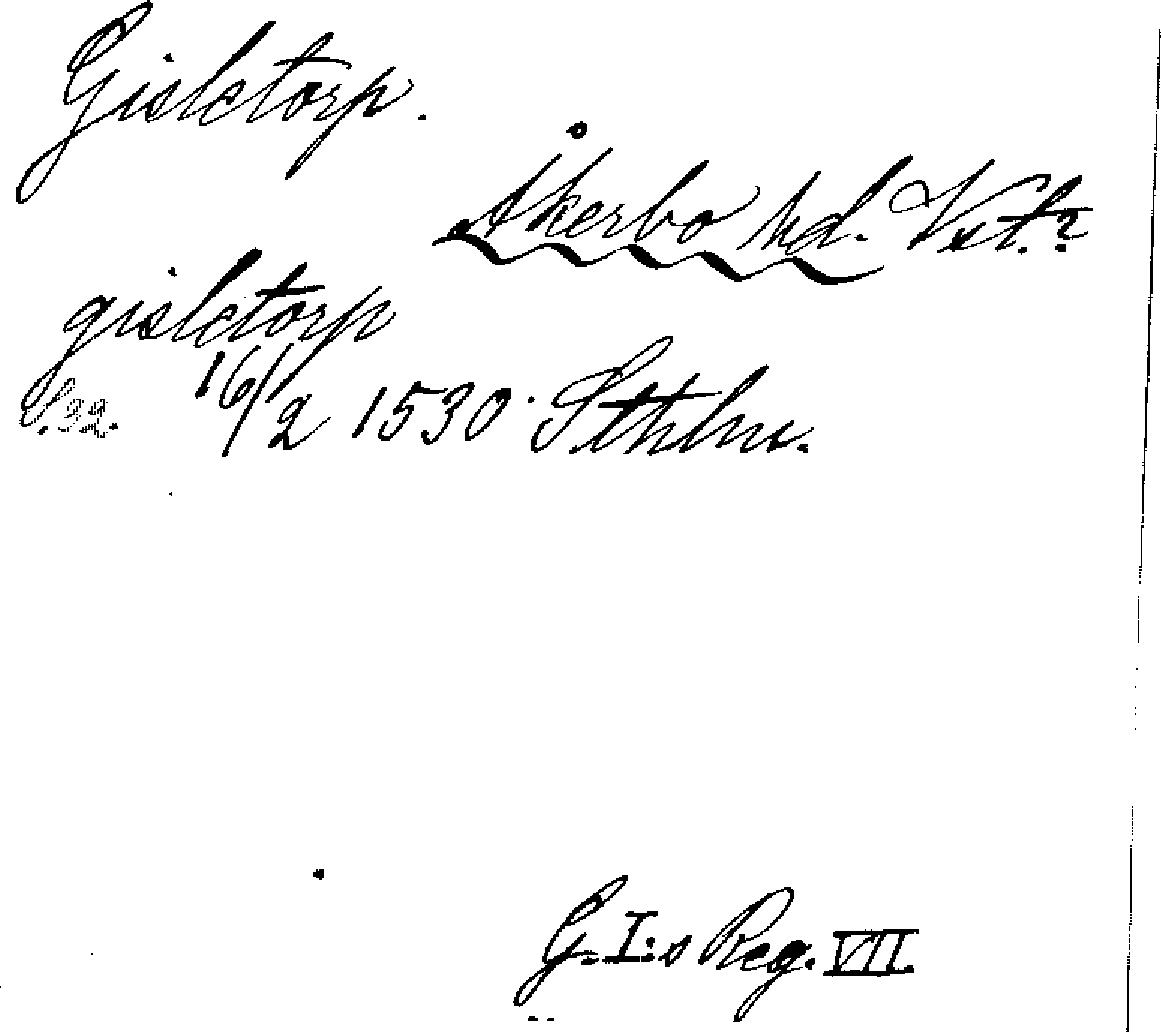 Gisletorp.
Åkerbo hd. Vstm.?
gisletorp
S. 32. 16/2 1530 Sthlm.
G. I:s Reg. VII.